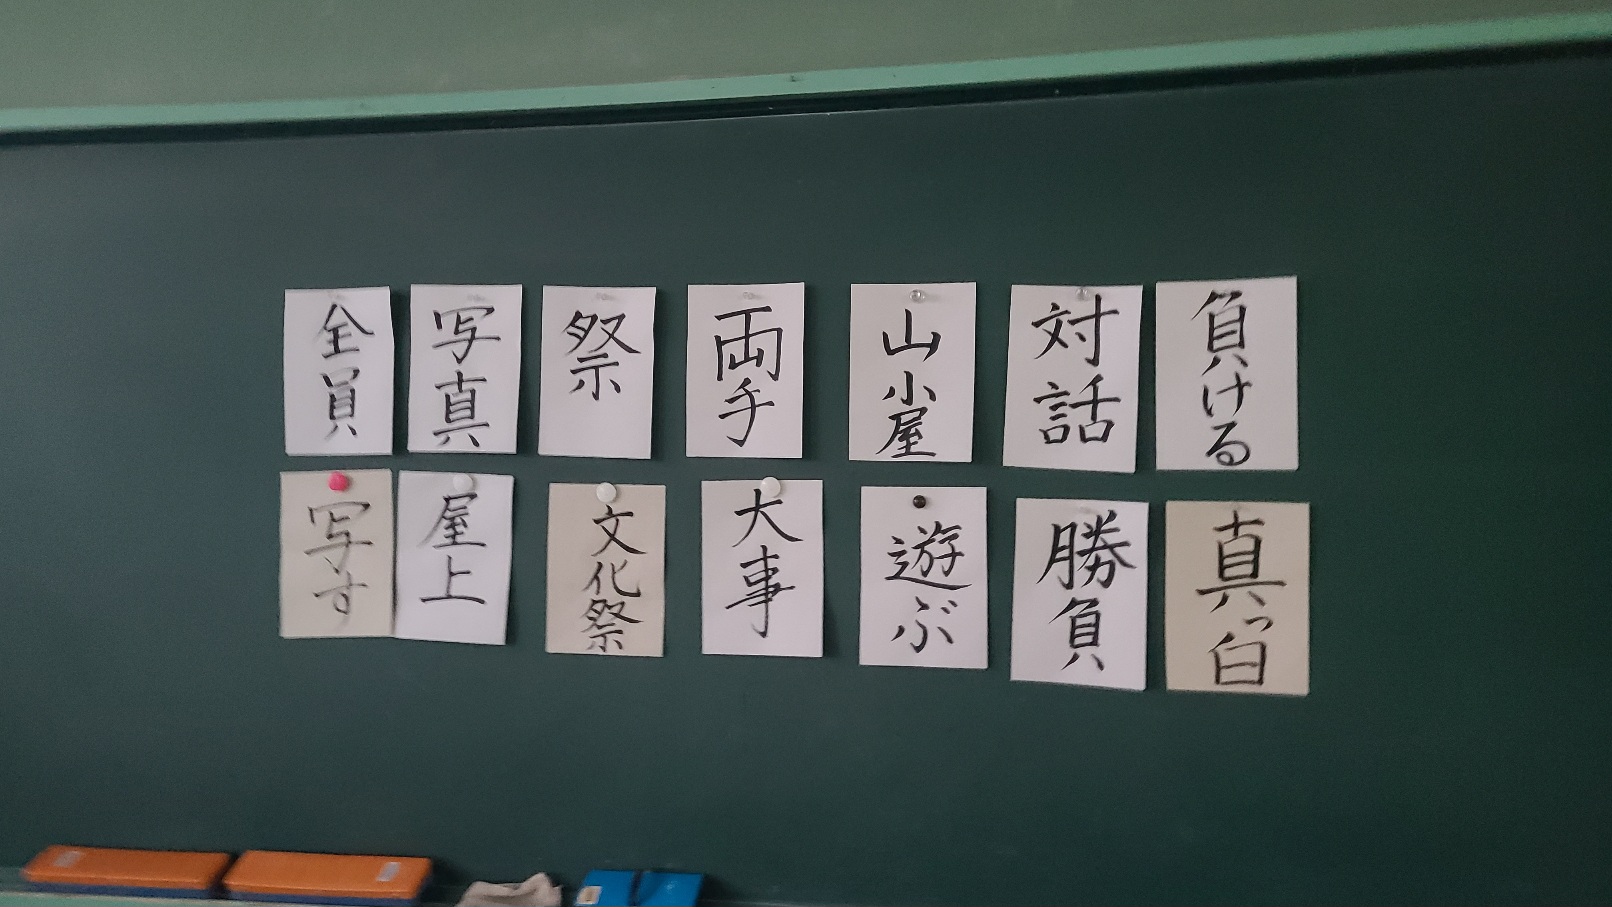 全員
写真
祭
両手
山小屋
対話
負ける
写す
屋上
文化祭
大事
遊ぶ
勝負
真っ白